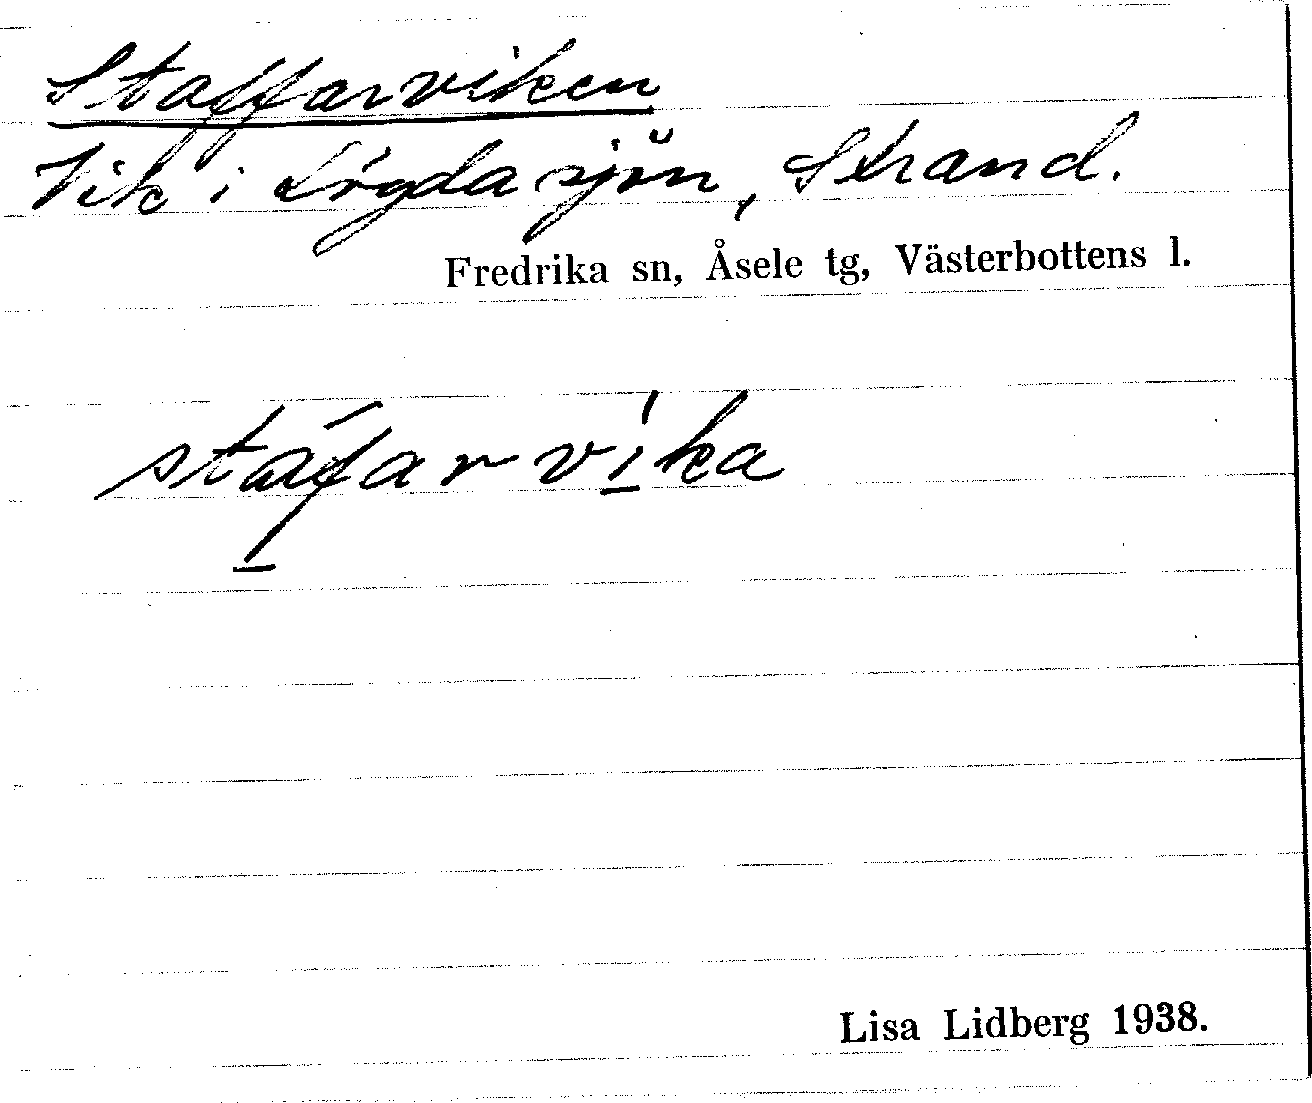 Staffarviken
Vik i Lögdasjön, Strand.
Fredrika sn, Åsele tg, Västerbottens l.
stáf̲ar ví̲ka
Lisa Lidberg 1938.